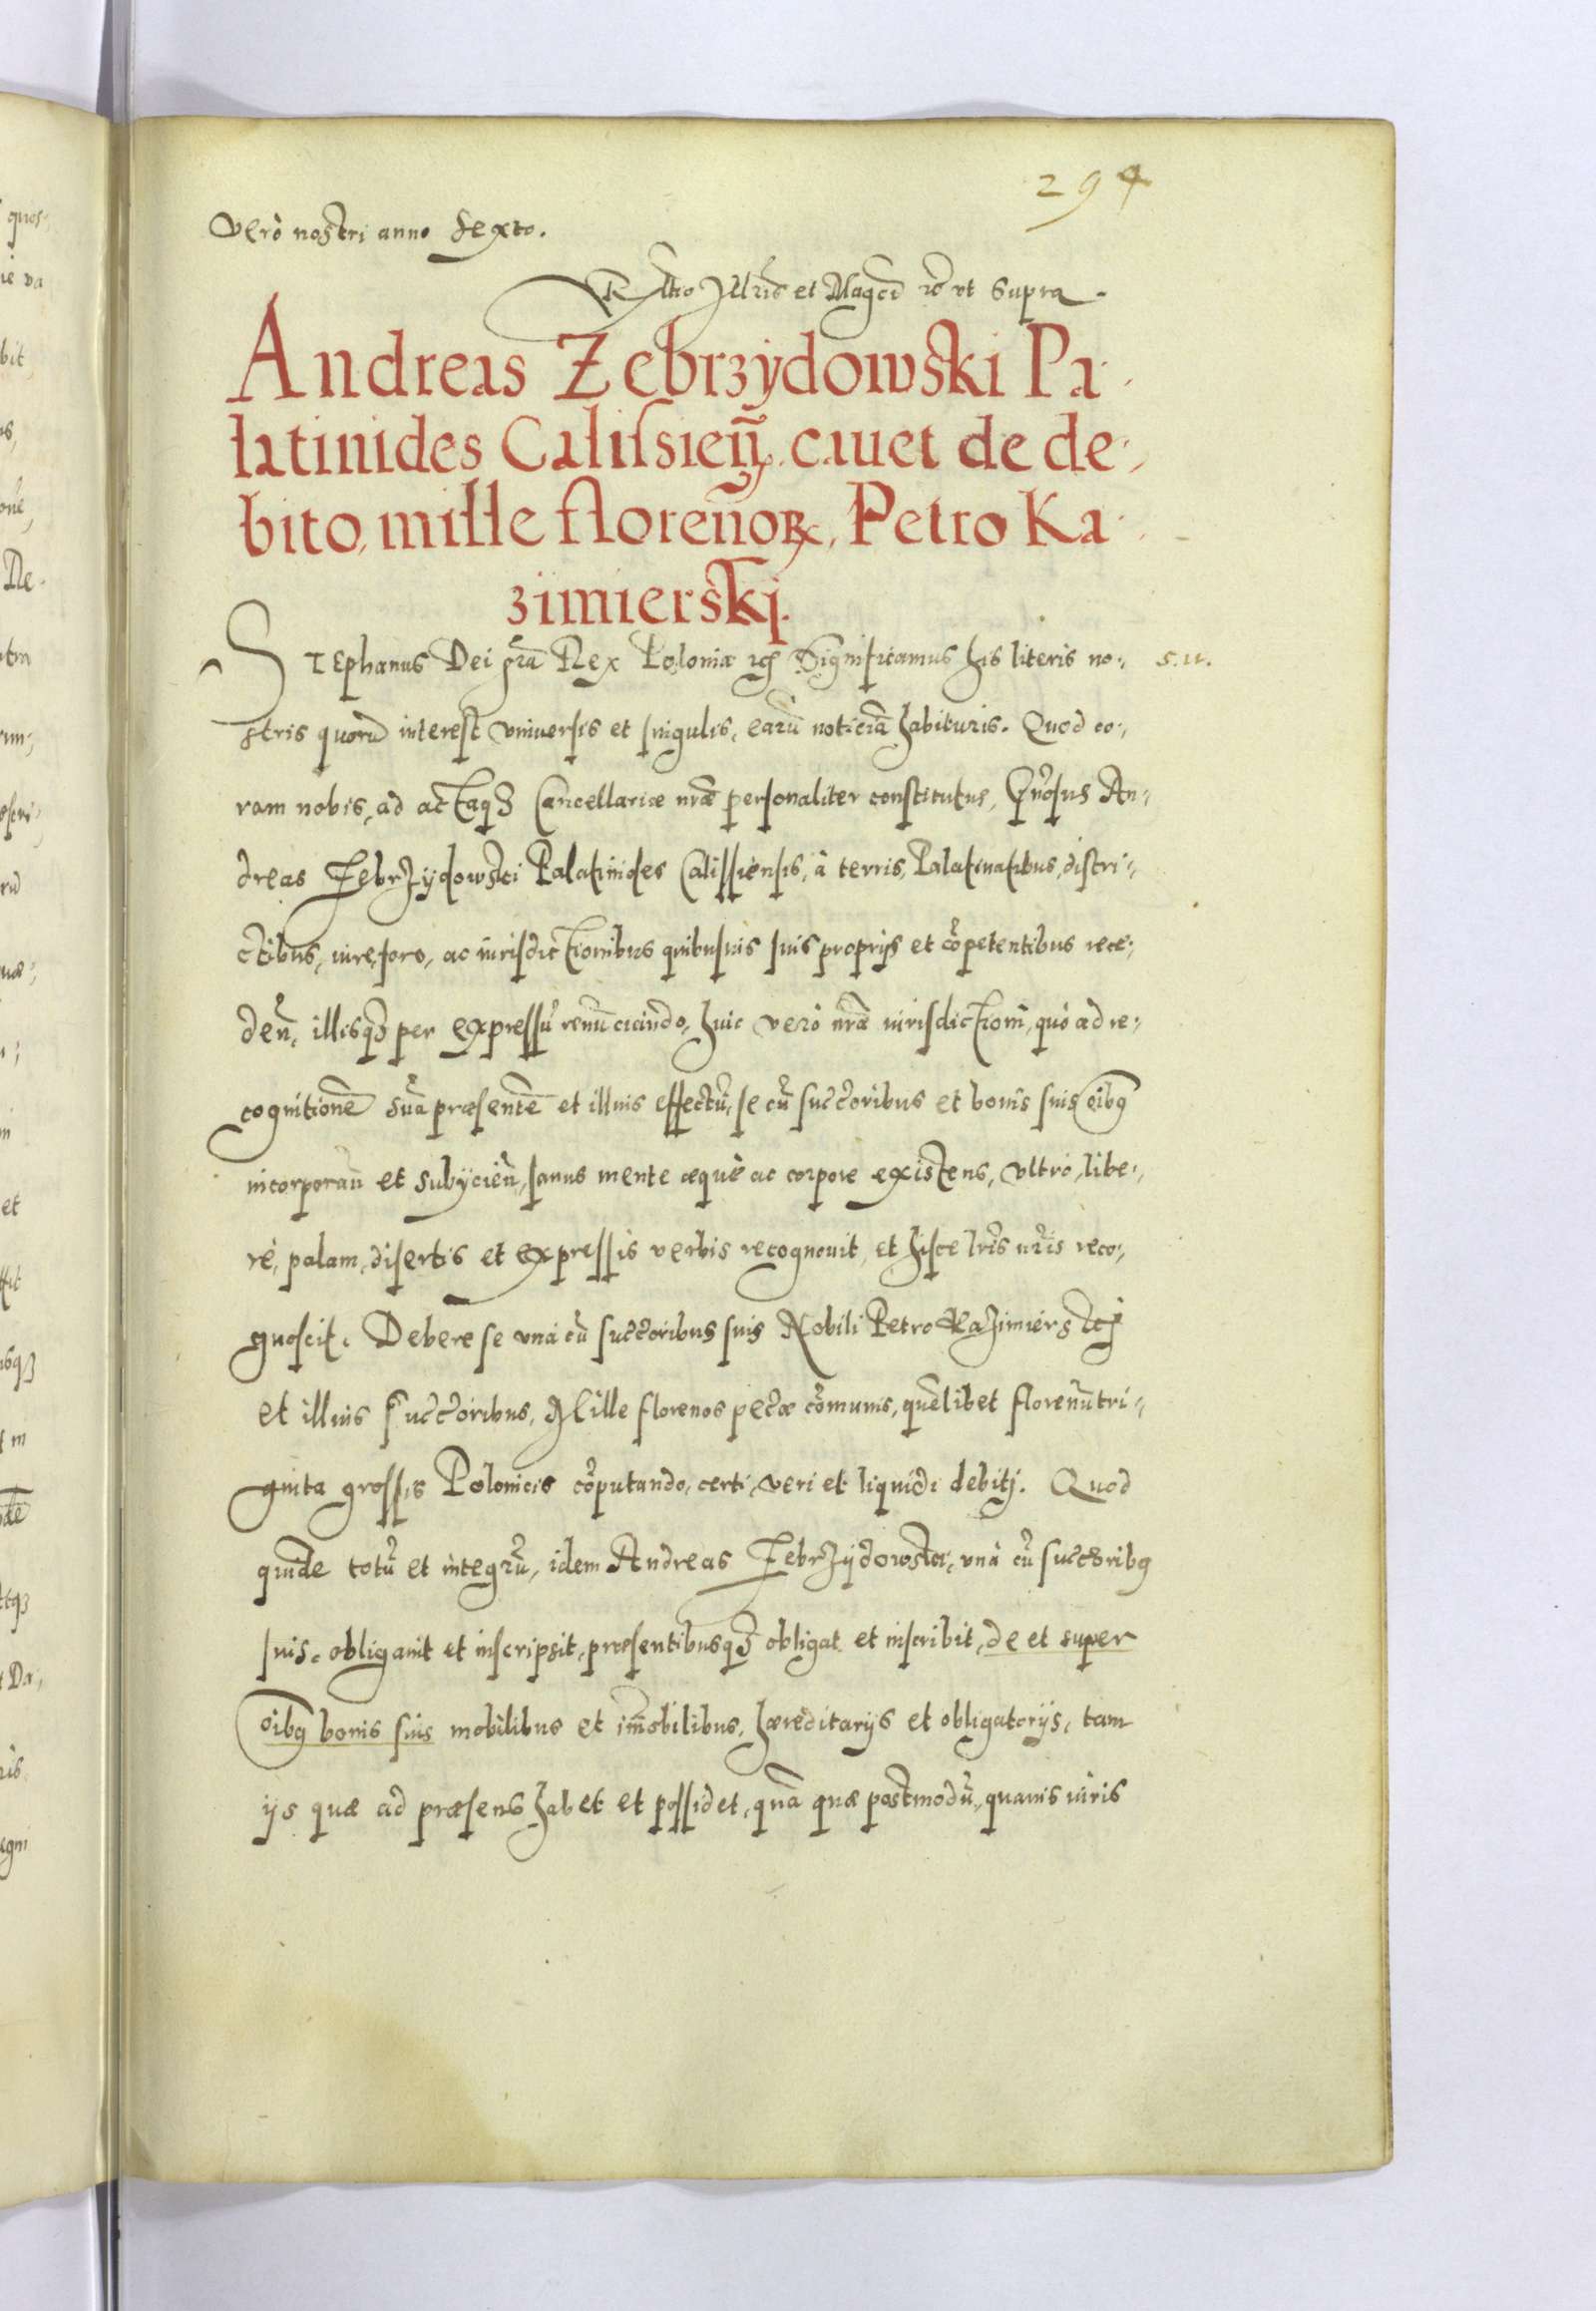 294
Verò nostri anno Sexto.
Rłtio Jllris et Magci rc ut supra.
Andreas Zebrzÿdowski Pa-
latinides Calissien̄. cauet de de-
bito, mille floren̄oꝝ, Petro Ka-
zimierskj.
STEphanus Dei gr̃a Rex Poloniæ rc̃ Significamus his literis no- s.u.
stris quorū interest vniuersis et singulis, earū noticiā habituris. Quod co-
ram nobis, ad actaqꝫ Cancellariæ nr̃æ personaliter constitutus, Gn̄osus An-
dreas Zebrzÿdowski Palatinides Calissiensis, à terris, Palatinatibus, distri-
ctibus, iure, foro, ac iurisdictionibus quibusuis suis proprijs et cōpetentibus rece-
den̄, illisqꝫ per expressū renūciando, huic verò nr̃æ iurisdictioni, quò ad re-
cognitionē suā præsentē et illius effectū, se cū succ̃oribus et bonis suis oībꝰ
incorporan̄ et subÿcien̄, sanus mente æquè ac corpore existens, vltrò, libe-
rè, palam, disertis et expressis verbis recognouit, et hisce lr̃is nr̃is reco-
gnoscit. Debere se vnà cū succ̃oribus suis Nobili Petro Kazimierskj
et illius succ̃oribus, Mille florenos pec̃æ cōmunis, quēlibet florenū tri-
ginta grossis Polonicis cōputando, certi, veri et liquidi debitj. Quod
quidē totū et integrū, idem Andreas Zebrzÿdowski, vnà cū succ̃oribꝰ
suis, obligauit et inscripsit, præsentibusqꝫ obligat et inscribit, de et super
oībꝰ bonis suis mobilibus et im̄obilibus, hæreditarijs et obligatorijs, tam
ijs quæ ad præsens habet et possidet, quā quæ postmodū, quauis iuris